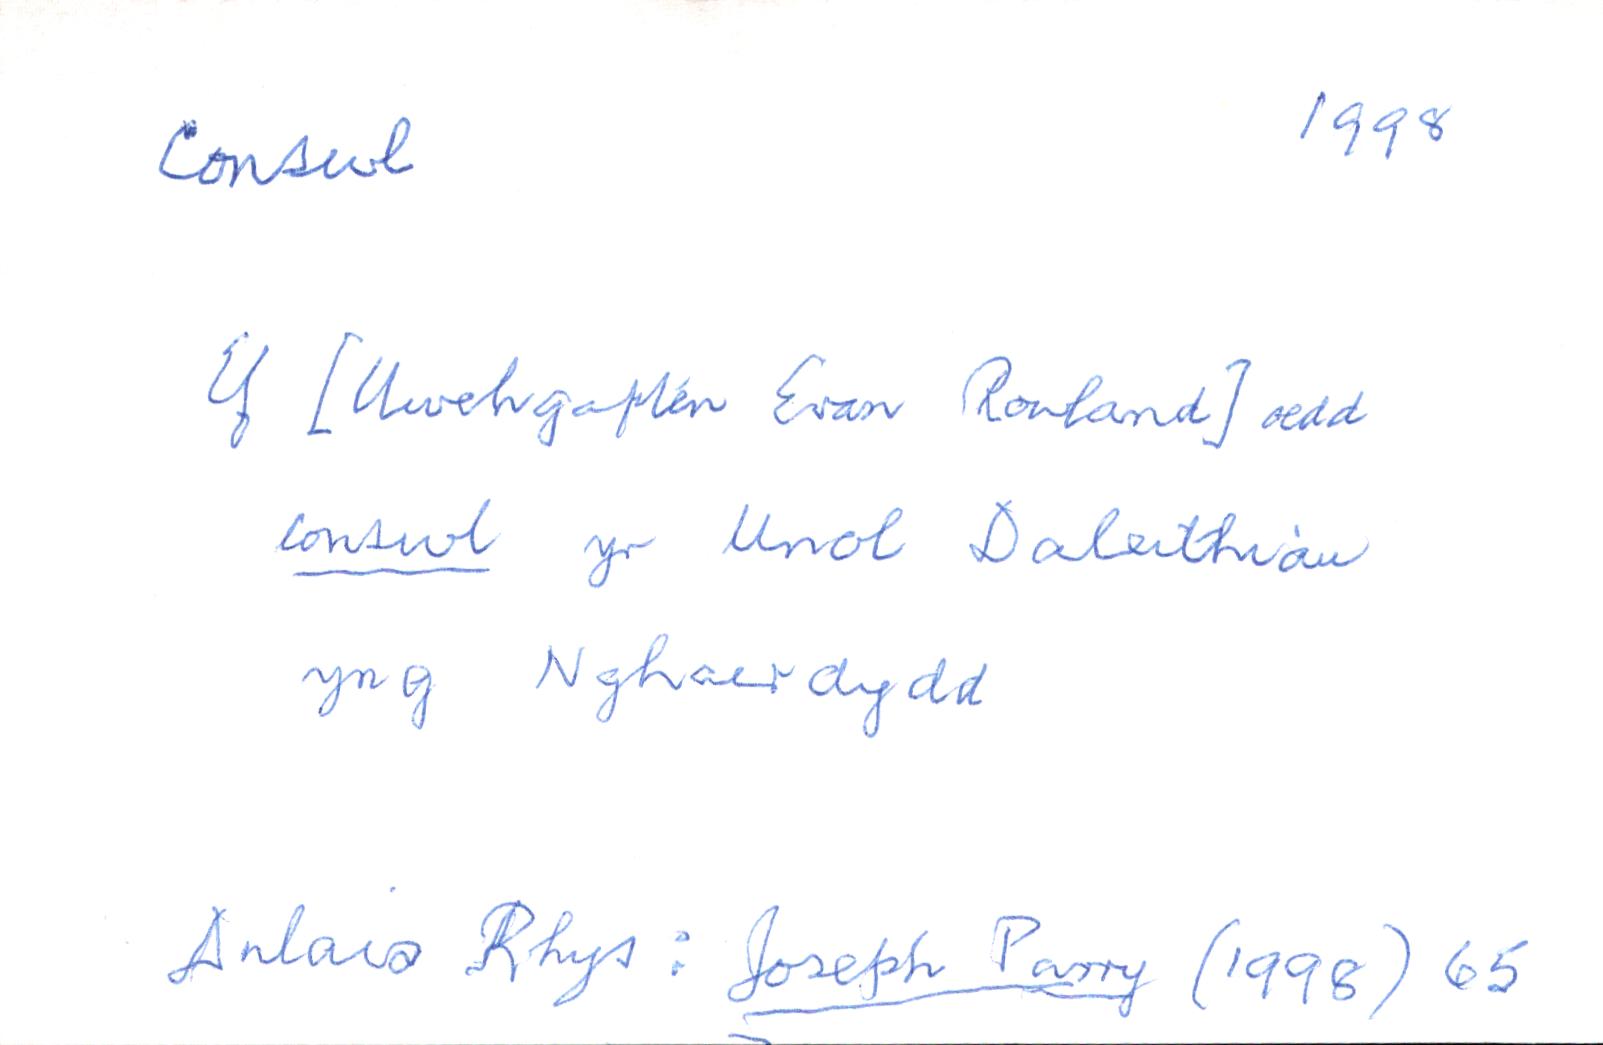 Conswl 1998
Ef [Uwchgapten Evan Rowland] oedd
conswl yr Unol Daleithiau
yng Nghaerdydd
Dulais Rhys: Joseph Parry (1998) 65